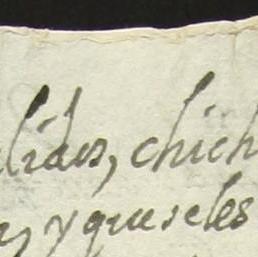 lidos, chich
y que seles